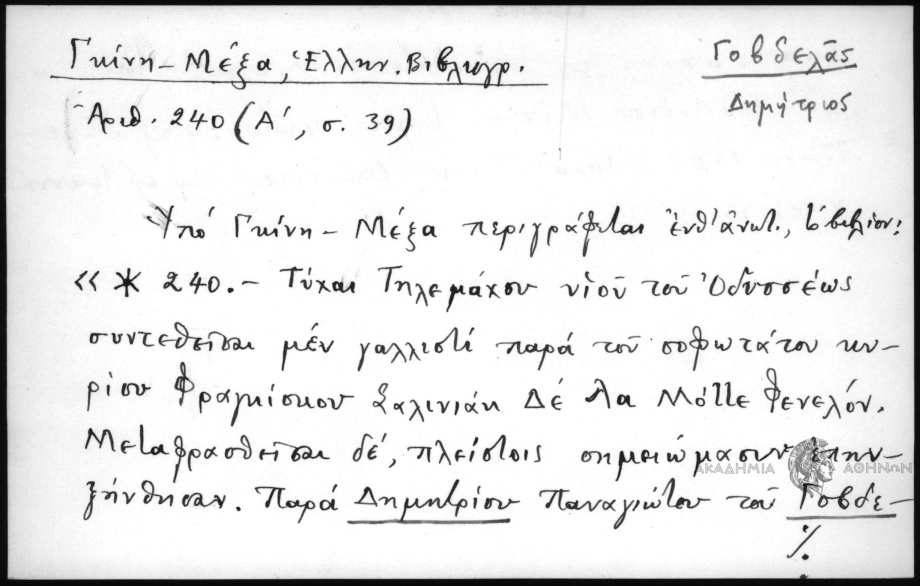 Γκίνη – Μέξα, Ἑλλην. Βιβλιογρ.
Γοβδελᾶς
Δημήτριος
Ἀριθ. 240 (Α΄, σ. 39)
Ὑπό Γκίνη – Μέξα περιγράφεται ἐνθ' ἀνωτ., τό βιβλίον:
<< * 240. – Τύχαι Τηλεμάχου υἱοῦ τοῦ Ὀδυσσέως
συντεθεῖσαι μέν γαλλιστί παρά τοῦ σοφωτάτου κυ-
ρίου Φραγκίσκου Σαλινιάκ Δέ Λα Μόττε Φενελόν.
Μεταφρασθεῖσαι δέ, πλείστοις σημειώμασιν ἐπην-
ξήνθησαν. Παρά Δημητρίου Παναγιώτου τοῦ Γοβδε-
%
ΑΚΑΔΗΜΙΑ ΑΘΗΝΩΝ